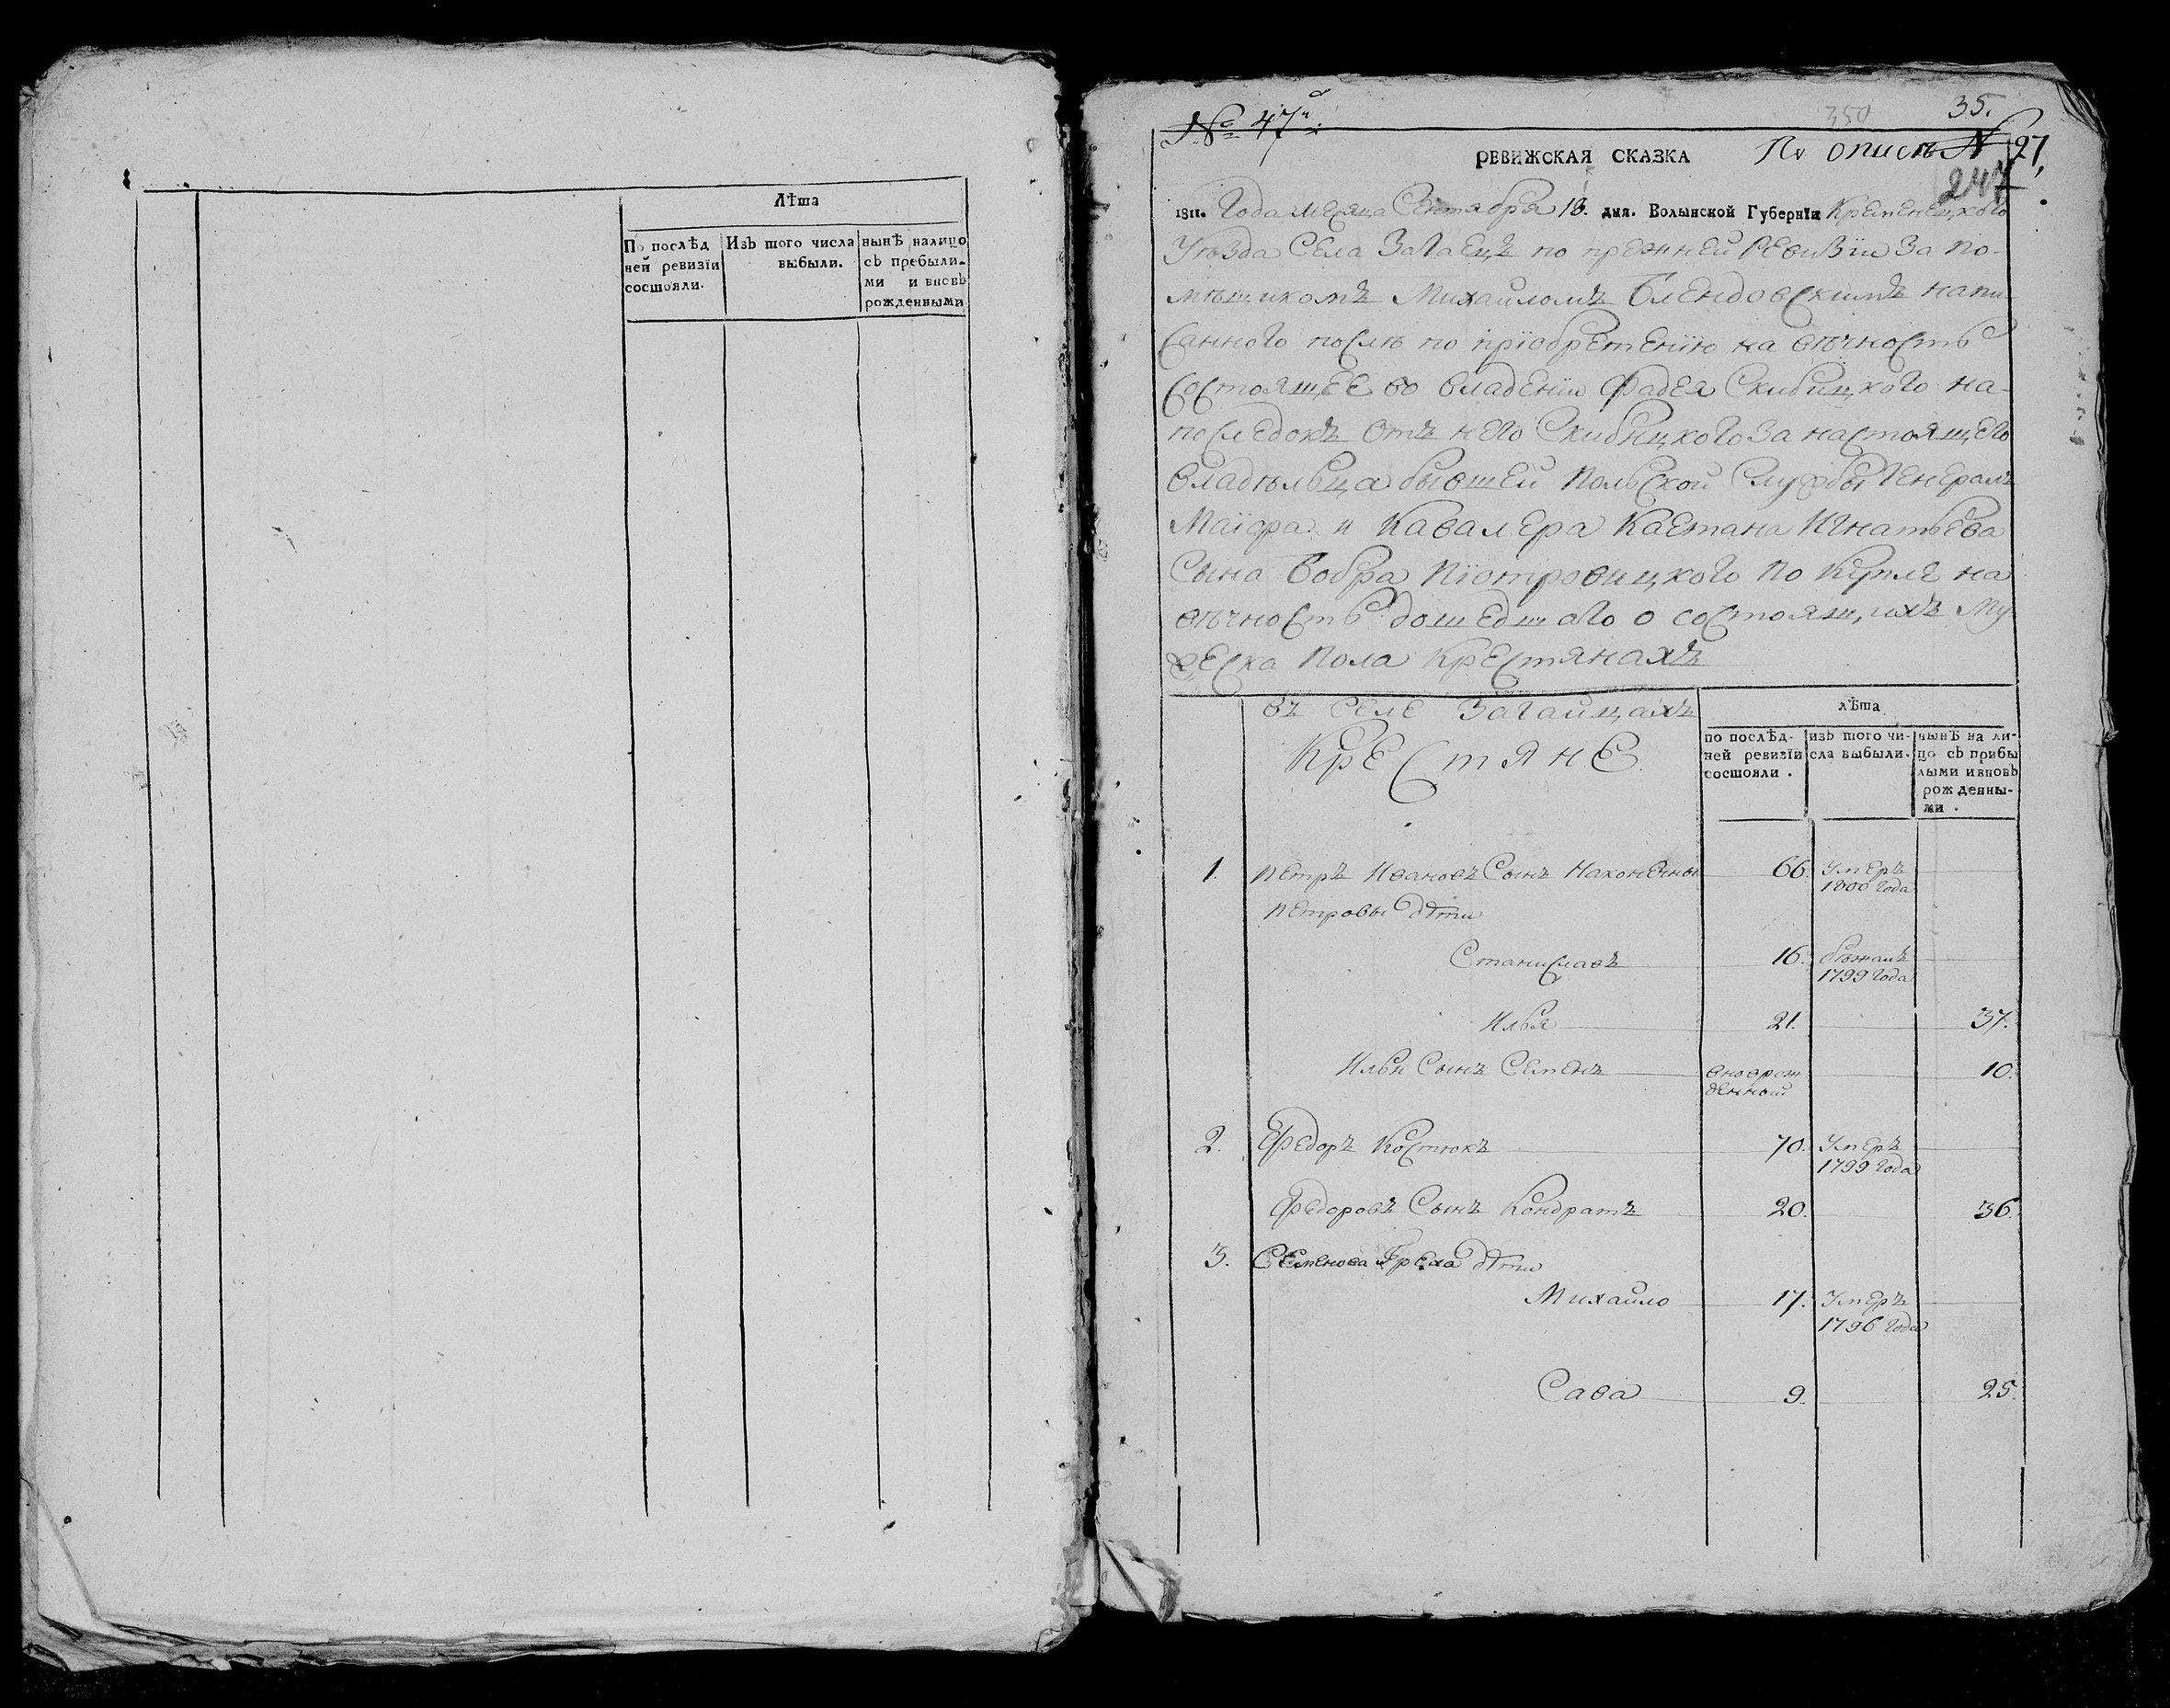 Лѣта
По послѣд
ней ревизіи
состояли.
Изъ того числа
выбыли.
нынѣ налицо
съ пребыли-
ми и вновь
рожденными
№ 47й
350
35.
РЕВИЖСКАЯ СКАЗКА По описѣ № 27,
247
1811. Года месяца Сентября 18. дня. Волынской Губерніи Кременецкого
Уѣзда Села Загаецъ по прежней Ревизіи За по-
мѣщикомъ Михаиломъ Блендовскимъ напи
санного послѣ по пріобретенію на вѣчность
состоящее во владеніи Фадея Скибицкого на-
последокъ отъ него Скибицкого За настоящего
владѣльца бывшей Польской Службы Генералъ
Маіора и Кавалера Каетана Игнатьева
Сына Бобра Піотровицкого по купле на
вѣчность дошедшаго о состоящихъ му
жеска пола крестянахъ
въ селе Загайцахъ
Крестяне
лѣта
по послѣд-
ней ревизіи
состояли.
изъ того чи-
сла выбыли.
нынѣ на ли-
цо съ прибы
лыми и вновь
рожденны-
ми.
1. Петръ Ивановъ Сынъ Наконечны 66. Умеръ
1800 года
Петровы дѣти
Станиславъ 16. бѣжалъ
1799 года
Илья 21. 37.
Ильи Сынъ Семенъ вноврож 10.
денный
2. Федоръ Костюкъ 70. Умеръ
1799 года
Федоровъ Сынъ Кондратъ 20. 36.
3. Семенова Греха дѣти
Михайло 17. Умеръ
1796 года
Сава 9. 25.